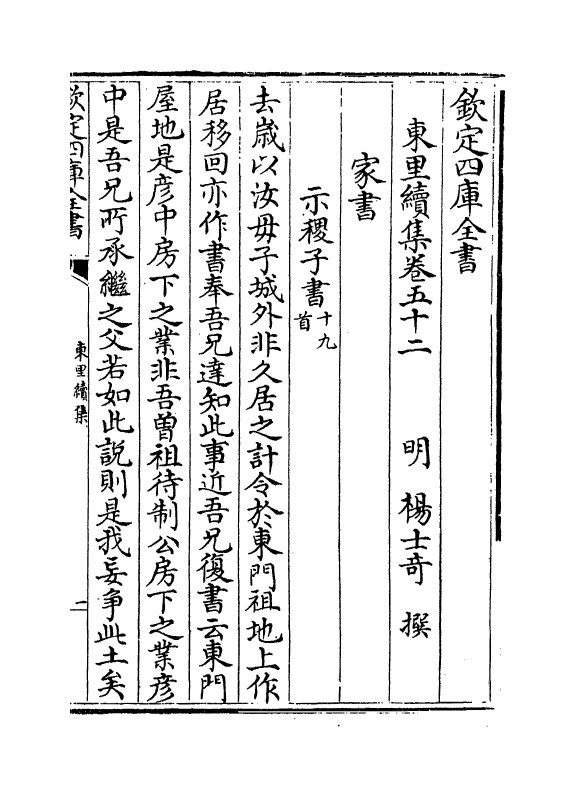 欽定四庫全書
東里續集卷五十二　明　楊士奇　撰
家書
示稷子書十九首
去歲以汝毋子城外非久居之計令於東門祖地上作
居移回亦作書奉吾兄達知此事近吾兄復書云東門
屋地是彦中房下之業非吾曽祖待制公房下之業彦
中是吾兄所承繼之父若如此説則是我妄争此土矣
欽定四庫全書
東里續集